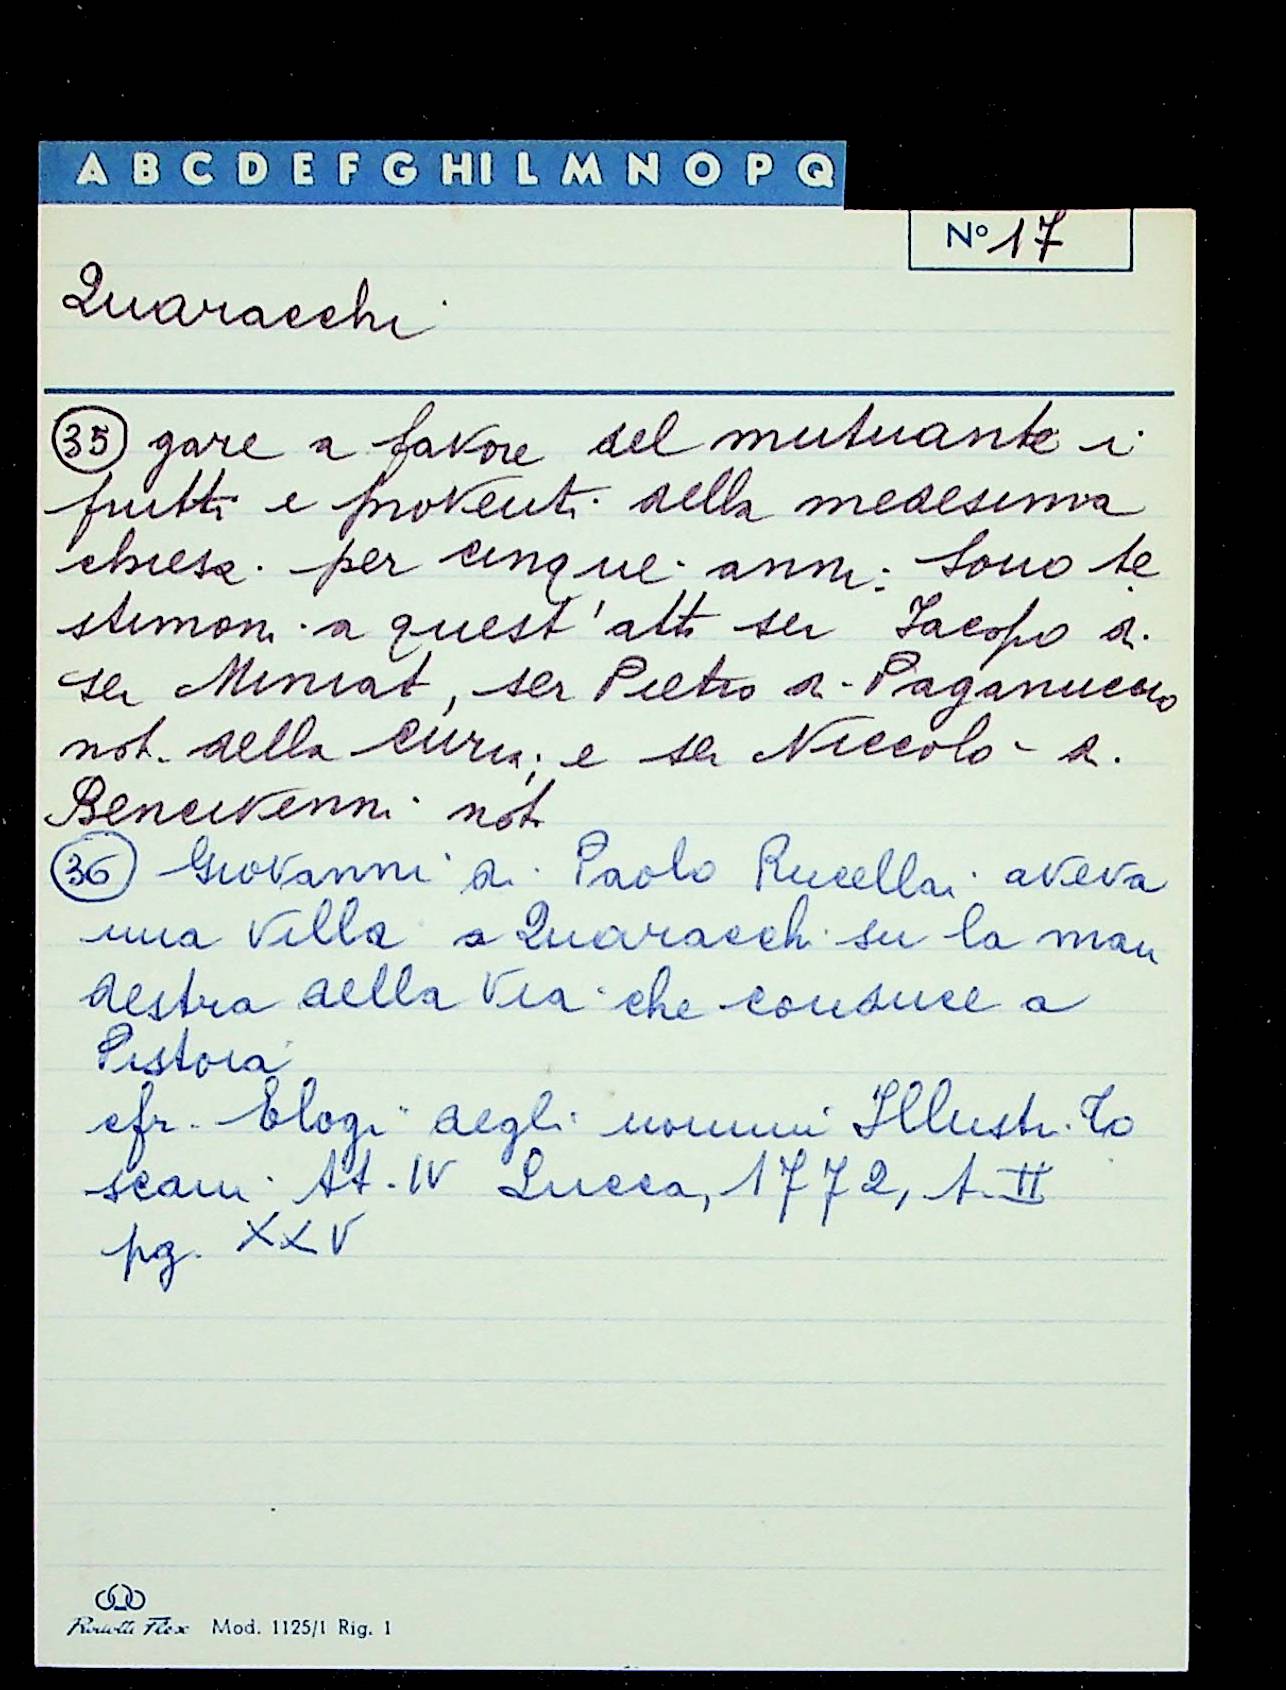 A B C D E F G HI L M N O P Q
N° 17
Quaracchi
35 gare a favore del mutuante i
frutti e proventi della medesima
chiesa per cinque anni. Sono te
stimoni a quest'atti ser Iacopo di
ser Miniat, ser Pietro di Paganuccio
not. della curia; e ser Niccolò di
Bencivenni not.
36 Giovanni di Paolo Rucellai aveva
una villa a Quaracchi su la man
destra della via che conduce a
Pistoia
cfr. Elogi degli uomini Illustri To
scani t. IV Lucca, 1772, t. II
pg. XXV
Flex Mod. 1125/1 Rig. 1